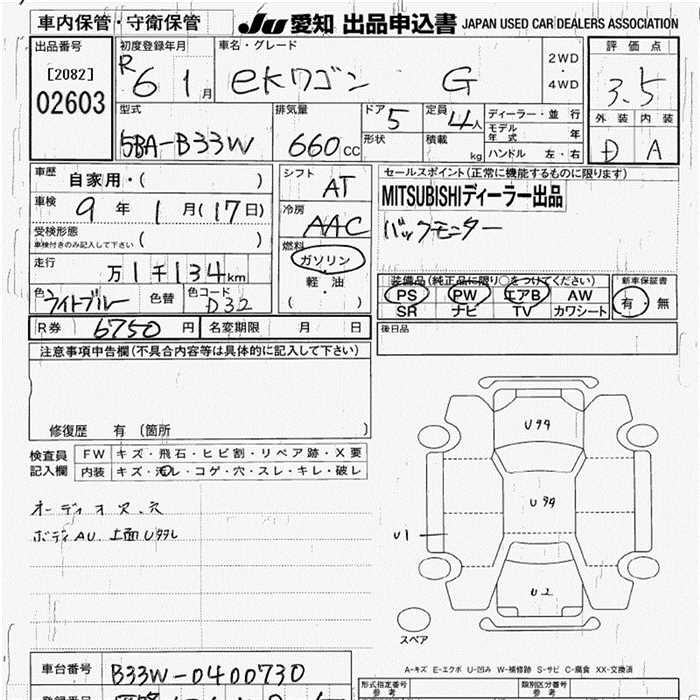 車内保管・守衛保管
JU 愛知 出品申込書 JAPAN USED CAR DEALERS ASSOCIATION
出品番号
[2082]
02603
初度登録年月
R6 1月
車名・グレード
ekワゴン G
2WD
・
4WD
評価点
3.5
外装 内装
D A
型式
5BA-B33W
排気量
660cc
ドア 5
形状
定員 4人
積載 kg
ディーラー・並行
モデル年式 年
ハンドル 左・右
車歴 自家用・( )
車検 9年1月(17日)
受検形態
車検付きのみ記入して下さい ( )
走行 万1千134km
色 ライトブルー 色替 色コード D32
R券 6750円 名変期限 月 日
シフト AT
冷房 AAC
燃料
ガソリン
・
軽油
( )
セールスポイント(正常に機能するものに限ります)
MITSUBISHIディーラー出品
バックモニター
装備品(純正品に限り○をつけてください)
PS PW エアB AW
SR ナビ TV カワシート
新車保証書
有 無
後日品
注意事項申告欄(不具合内容等は具体的に記入して下さい)
修復歴 有 (箇所 )
検査員記入欄
FW キズ・飛石・ヒビ割・リペア跡・X要
内装 キズ・汚レ・コゲ・穴・スレ・キレ・破レ
オーディオ欠、穴
ボディAU、上面Uタタレ
U99
U99
U1
U2
スペア
A-キズ E-エクボ U-凹み W-補修跡 S-サビ C-腐食 XX-交換済
車台番号 B33W-0400730
登録番号
型式指定番号
参考
類別区分番号
参考